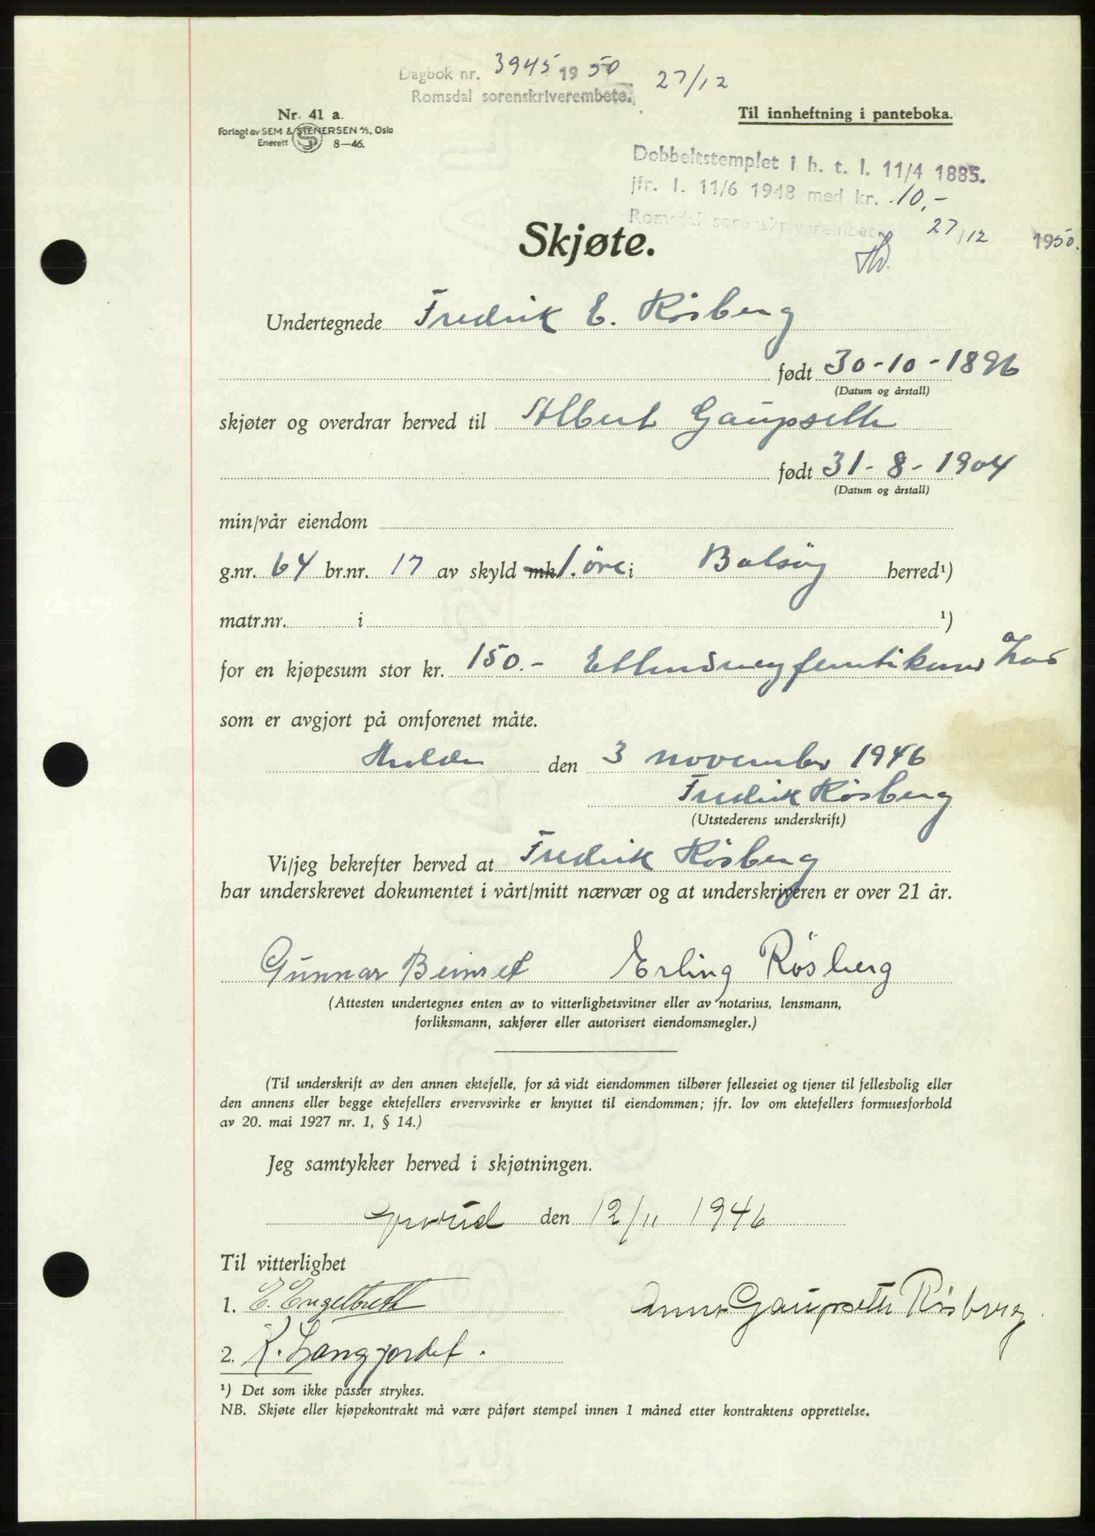 Dagbok nr. 3945 1950 27/12
Romsdal sorenskriverembete.
Nr. 41 a.
Forlagt av SEM & STENERSEN A/S, Oslo
Enerett 8—46.
Til innheftning i panteboka.
Dobbeltstemplet i h. t. l. 11/4 1885.
jfr. l. 11/6 1948 med kr. 10,-
Romsdal sorenskriverembete 27/12 1950.
Skjøte.
Undertegnede Fredrik E. Røsberg
født 30-10-1896
(Datum og årstall)
skjøter og overdrar herved til Albert Gaupseth
født 31-8-1904
(Datum og årstall)
min/vår eiendom
g.nr. 64 br.nr. 17 av skyld mk 1. øre i Bolsøy herred¹)
matr.nr. i ¹)
for en kjøpesum stor kr. 150.-
som er avgjort på omforenet måte.
den 3 november 1946
Fredrik Røsberg
(Utstederens underskrift)
Vi/jeg bekrefter herved at Fredrik Røsberg
har underskrevet dokumentet i vårt/mitt nærvær og at underskriveren er over 21 år.
Gunnar Beinset Erling Røsberg
(Attesten undertegnes enten av to vitterlighetsvitner eller av notarius, lensmann,
forliksmann, sakfører eller autorisert eiendomsmegler.)
(Til underskrift av den annen ektefelle, for så vidt eiendommen tilhører felleseiet og tjener til fellesbolig eller
den annens eller begge ektefellers ervervsvirke er knyttet til eiendommen; jfr. lov om ektefellers formuesforhold
av 20. mai 1927 nr. 1, § 14.)
Jeg samtykker herved i skjøtningen.
den 12/11 1946
Til vitterlighet
1. E. Engelbreth
Anna Gaupseth Røsberg.
2. K. Langjordet.
¹) Det som ikke passer strykes.
NB. Skjøte eller kjøpekontrakt må være påført stempel innen 1 måned etter kontraktens opprettelse.